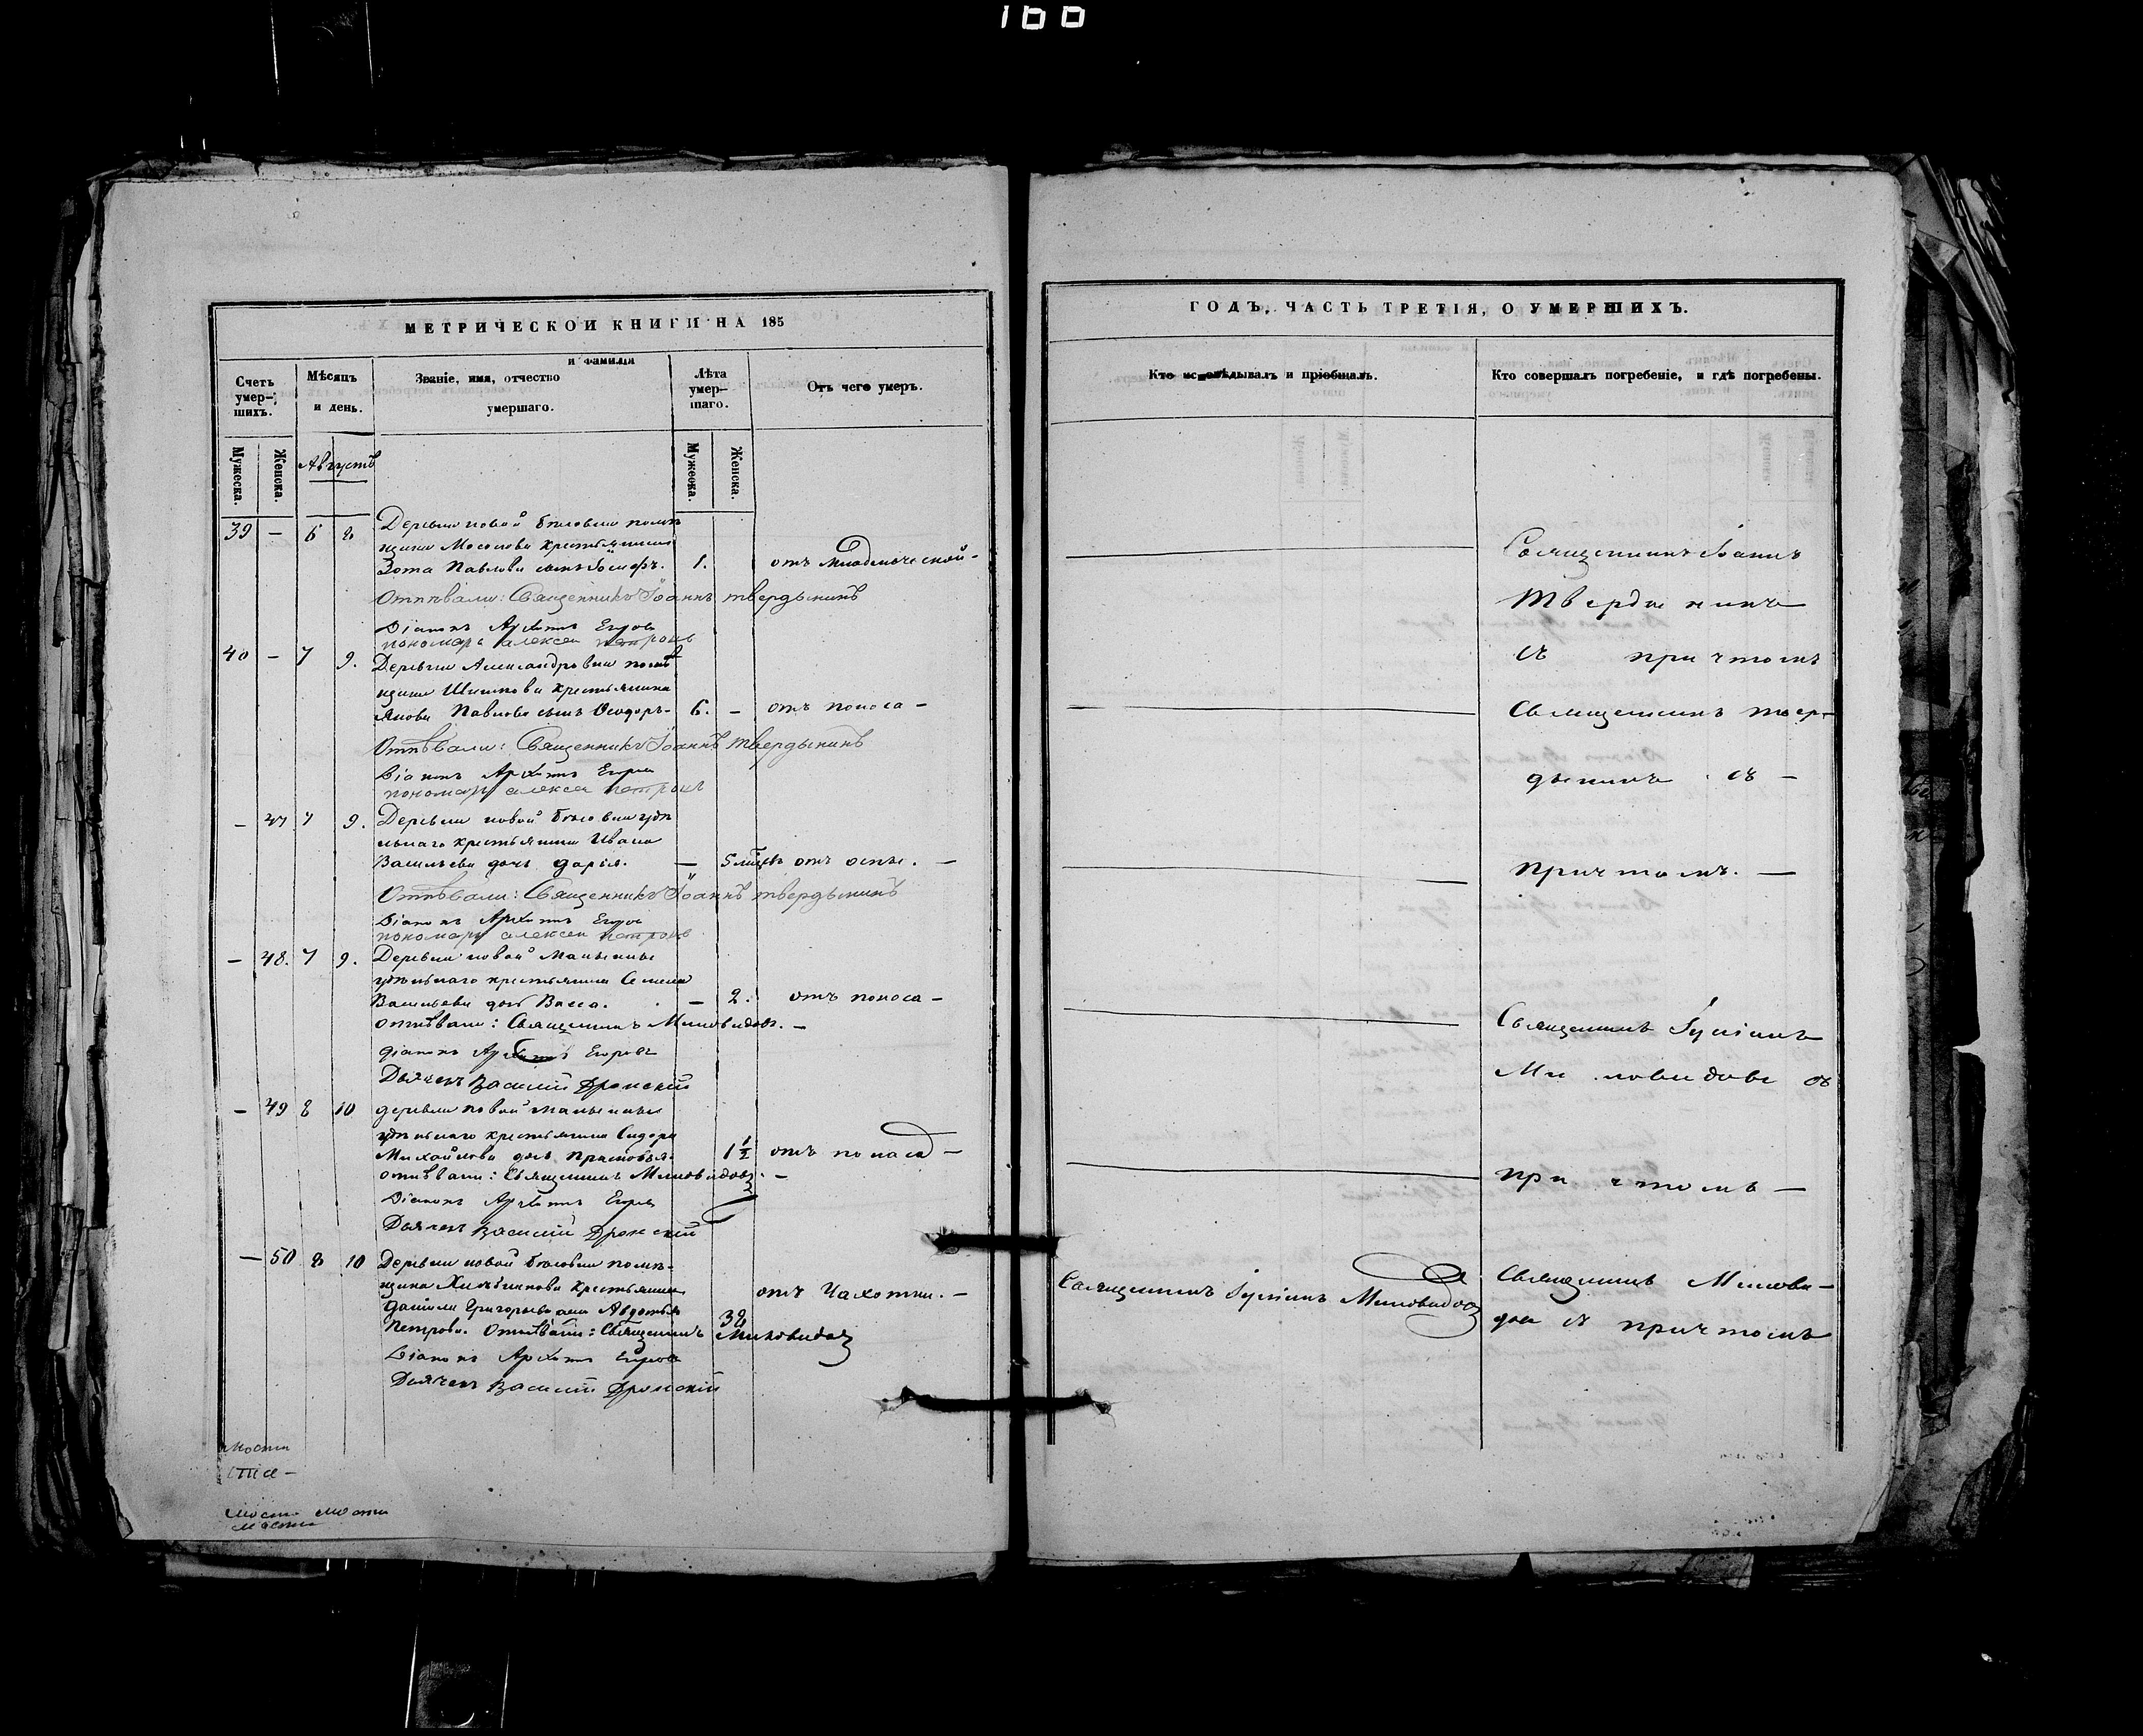 166
МЕТРИЧЕСКОЙ КНИГИ НА 185
Счетъ умер-шихъ.
Мѣсяцъ и день.
Званіе, имя, отчество и фамилія умершаго.
Лѣта умер-шаго.
Отъ чего умеръ.
Мужеска.
Женска.
Августъ
Мужеска.
Женска.
39 — 6 8 Деревни новой помѣ
щика Мосолова крестьянина
Зота Павлова сынъ Іосифъ. 1. отъ младенческой
Отпѣвали: Священникъ Іоаннъ Твердынинъ
Діаконъ Архипъ Егоровъ
пономарь алексеи петровъ
40 — 7 9. Деревни Александровки помѣ
щика Шишкова крестьянина
Якова Павлова сынъ Ѳеодоръ 6. — отъ поноса —
Отпѣвали: Священникъ Іоаннъ Твердынинъ
Діаконъ Архипъ Егоровъ
пономарь алексеи петровъ
— 47 7 9. Деревни новой удѣ
льнаго крестьянина Ивана
Васильева дочь Дарья. — 5 мѣцъ отъ оспы. —
Отпѣвали: Священникъ Іоаннъ Твердынинъ
Діаконъ Архипъ Егоровъ
пономарь алексеи петровъ
— 48. 7 9. Деревни новой
удѣльнаго крестьянина Семена
Васильева доч Васса. — 2. отъ поноса —
отпѣвали: Священникъ Миловидовъ. —
діаконъ Архипъ Егоровъ
Дьячекъ Василій Дромскій
— 49 8 10 деревни новой
удѣльнаго крестьянина Сидора
Михайлова доч Прасковья. 1 1/2 отъ поноса —
отпѣвали: Священникъ Миловидовъ. —
Діаконъ Архипъ Егоровъ
Дьячекъ Василій Дромскій
— 50 8 10 Деревни новой помѣ-
щика крестьянина
Данилы Григорьева жена Авдотья 38 отъ чахотки. —
Петрова. Отпѣвали: Священникъ Миловидовъ
Діаконъ Архипъ Егоровъ
Дьячекъ Василій Дромскій
ГОДЪ, ЧАСТЬ ТРЕТІЯ, О УМЕРШИХЪ.
Кто исповѣдывалъ и пріобщалъ.
Кто совершалъ погребеніе, и гдѣ погребены.
Священникъ Іоаннъ
Твердынинъ
съ причтомъ
Священникъ Твер-
дынинъ съ —
причтомъ. —
Священникъ Іуліанъ
Миловидовъ съ
причтомъ —
Священникъ Іуліанъ Миловидовъ
Священникъ Милови-
довъ съ причтомъ